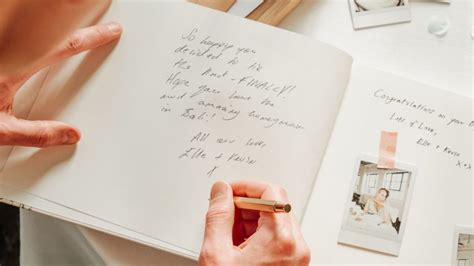 So happy you
decided to tie
the knot - FINALLY!
Hope you have the
most amazing honeymoon
in Bali!!
All our love,
Elle + Kevin
X
Congratulations on your
Lots of Love,
Elle + Kevin
x x